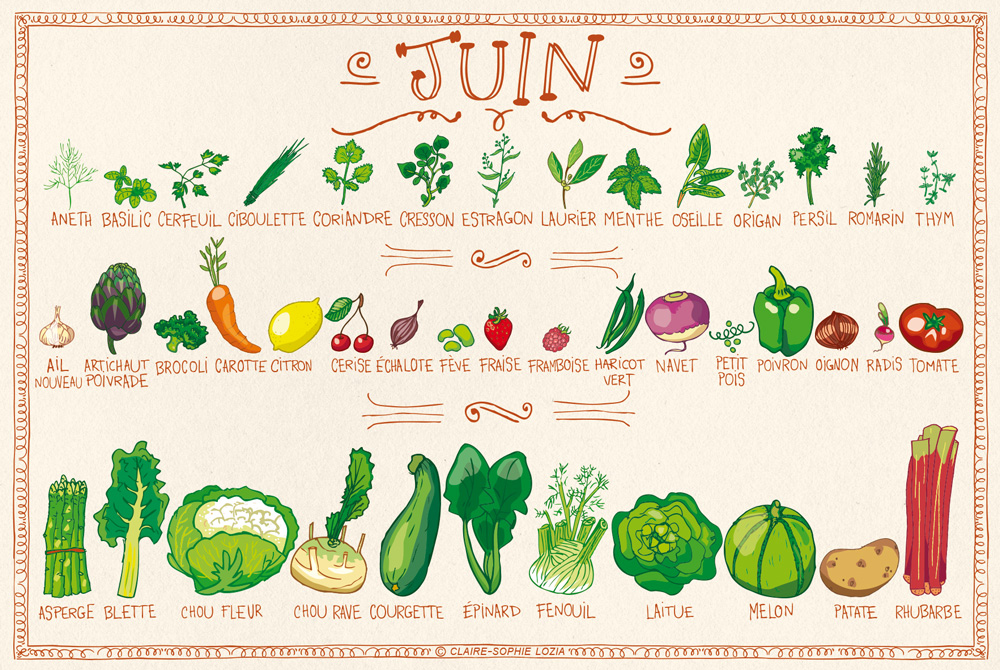 JUIN
ANETH BASILIC CERFEUIL CIBOULETTE CORIANDRE CRESSON ESTRAGON LAURIER MENTHE OSEILLE ORIGAN PERSIL ROMARIN THYM
AIL NOUVEAU
ARTICHAUT POIVRADE
BROCOLI CAROTTE CITRON CERISE ÉCHALOTE FÈVE FRAISE FRAMBOISE
HARICOT VERT
NAVET
PETIT POIS
POIVRON OIGNON RADIS TOMATE
ASPERGE BLETTE CHOU FLEUR CHOU RAVE COURGETTE ÉPINARD FENOUIL LAITUE MELON PATATE RHUBARBE
© CLAIRE-SOPHIE LOZIA